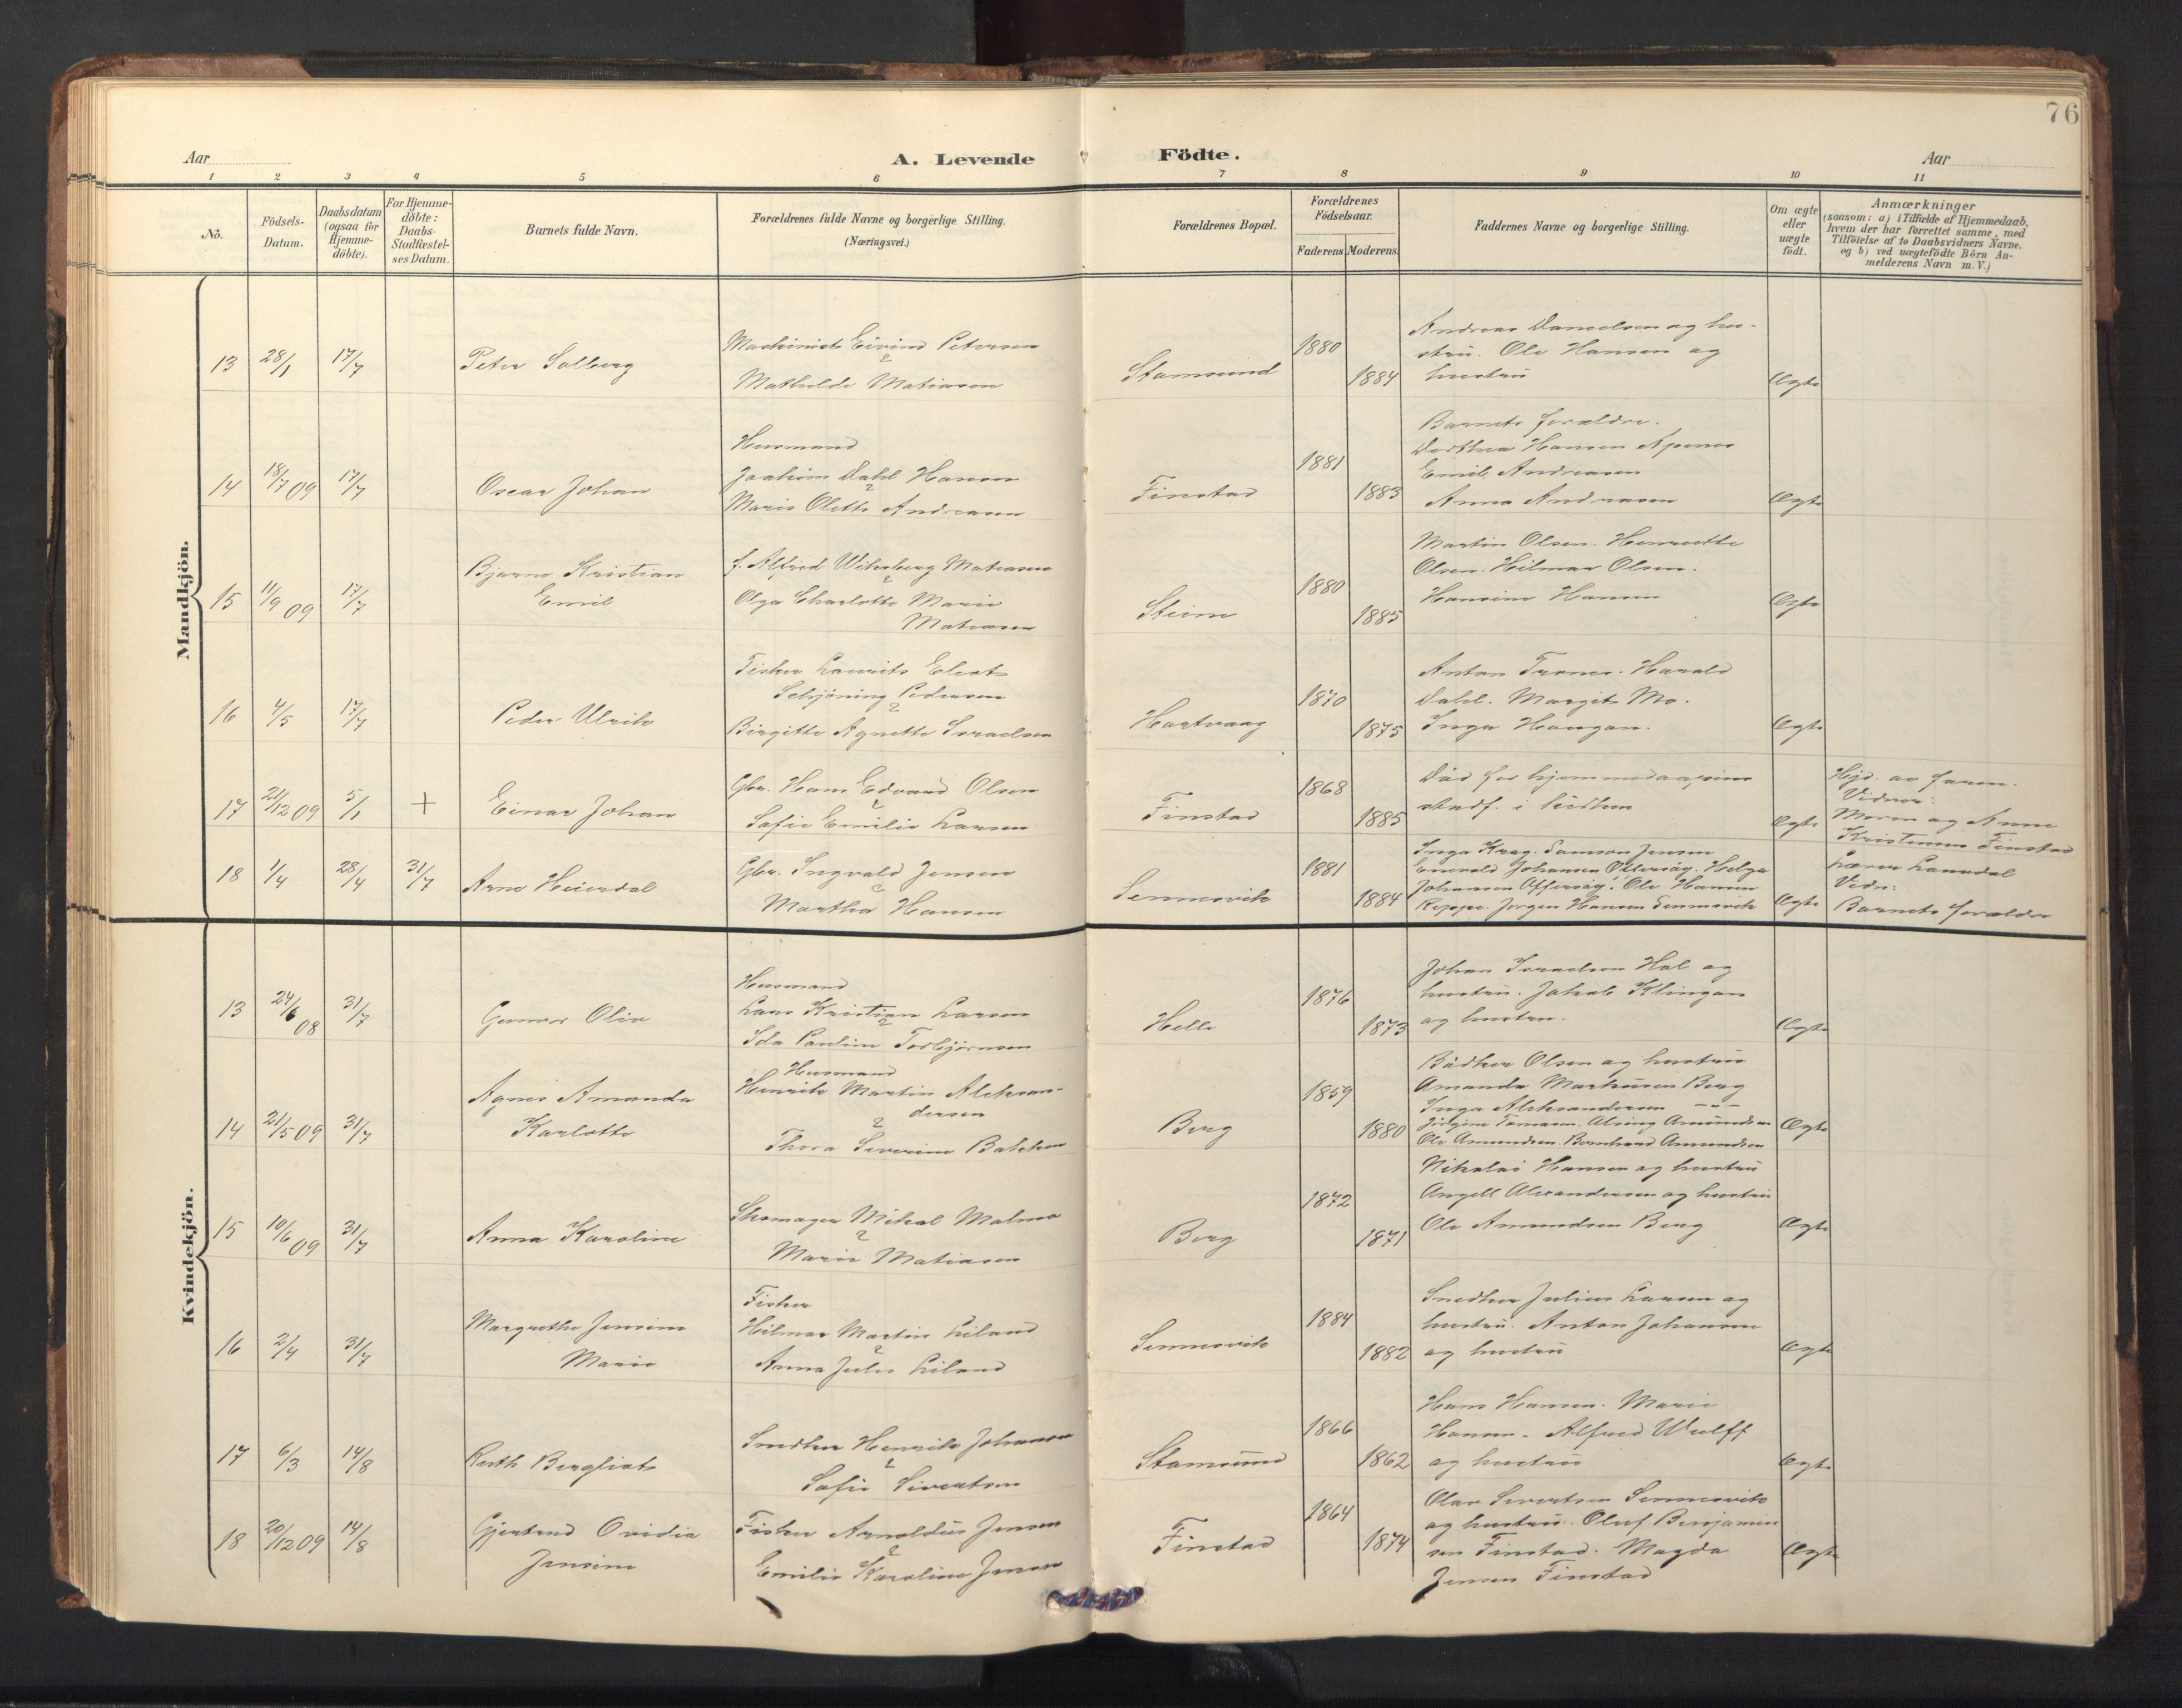 76
Aar
A. Levende
Födte.
Aar
1 2 3 4 5 6 7 8 9 10 11
No.
Födsels-
Datum.
Daabsdatum
(ogsaa for
Hjemme-
döbte).
For Hjemme-
döbte:
Daabs-
Stadfæstel-
ses Datum.
Barnets fulde Navn.
Forældrenes fulde Navne og borgerlige Stilling.
(Næringsvei.)
Forældrenes Bopæl.
Forældrenes
Födselsaar.
Faderens Moderens
Faddernes Navne og borgerlige Stilling.
Om ægte
eller
uægte
födt.
Anmærkninger
(saasom: a) i Tilfælde af Hjemmedaab,
hvem der har forrettet samme, med
Tilföielse af to Daabsvidners Navne,
og b) ved uægtefödte Börn An-
melderens Navn m.V.)
Mandkjön.
13 28/1 17/7
Peter Solberg
Maskinist Eivind Petersen
Mathilde Matiasen
Stamsund
1880
1884
Andreas Danielsen og hu-
stru. Ole Hansen og
hustru
Ægte
14 18/7 09 17/7
Oscar Johan
Husmand
Joakim Dahl Hansen
Marie Olette Andreasen
Finstad
1881
1883
Barnets forældre.
Dorthea Hansen
Emil Andreasen
Anna Andreasen
Ægte
15 11/9 09 17/7
Bjarne Kristian
Emil
f. Alfred Matiasen
Olga Charlotte Marie
Matiasen
Steine
1880
1885
Martin Olsen. Henriette
Olsen. Hilmar Olsen.
Hansine Hansen
Ægte
16 4/5 17/7
Peder Ulrik
Fisker Laurits
Schjöning Pedersen
Birgitte Agnette Israelsen
Hartvaag
1870
1875
Anton. Harald
Dahl. Margit Mo.
Inga Haugan.
Ægte
17 21/12 09 5/1 +
Einar Johan
Gbr. Hans Edvard Olsen
Sofie Emilie Larsen
Finstad
1868
1885
Död for hjemmedaapens
stadf. i kirken
Ægte
Hjd. av faren.
Vidner:
Moren og Anne
Kristensen Finstad
18 1/4 28/4 31/7
Arne Heierdal
Gbr. Ingvald Jensen
Martha Hansen
Sennesvik
1881
1884
Inga Krog. Samson Jensen
Johansen. Helga
Johansen. Ole Hansen
Reppe. Jørgen Hansen Sennesvik
Ægte
Lærer
Vidn:
Barnets forældre
Kvindekjön.
13 24/6 08 31/7
Gunvor Olive
Husmand
Lars Kristian Larsen
Ida Pauline Torbjørnsen
Helle
1876
1873
Johan Israelsen Hol og
hustru. Jakob Klingan
og hustru.
Ægte
14 21/5 09 31/7
Agnes Amanda
Karlotte
Husmand
Henrik Martin Aleksan-
dersen
Thora Severine Bakken
Berg
1859
1880
Bödker Olsen og hustru
Amanda Markusen Berg
Inga Aleksandersen — " —
Amundsen
Ole Amundsen. Bernhard Amundsen
Ægte
15 10/6 09 31/7
Anna Karoline
Skomager Mikal Malmo
Marie Matiasen
Berg
1872
1871
Nikolai Hansen og hustru
Angell Alexandersen og hustru
Ole Amundsen Berg
Ægte
16 2/4 31/7
Margrethe Jensine
Marie
Fisker
Hilmar Martin Leland
Anna Julie Leland
Sennesvik
1884
1882
Snedker Julius Larsen og
hustru. Anton Johansen
og hustru
Ægte
17 6/3 14/8
Ruth Bergliot
Snedker Henrik Johansen
Sofie Sivertsen
Stamsund
1866
1862
Hans Hansen. Marie
Hansen. Alfred Wulff
og hustru
Ægte
18 20/12 09 14/8
Gjertrud Ovidia
Jensine
Fisker Arnoldus Jensen
Emilie Karoline Jensen
Finstad
1864
1874
Olav Sivertsen Sennesvik
og hustru. Oluf Benjamin
sen Finstad. Magda
Jensen Finstad
Ægte